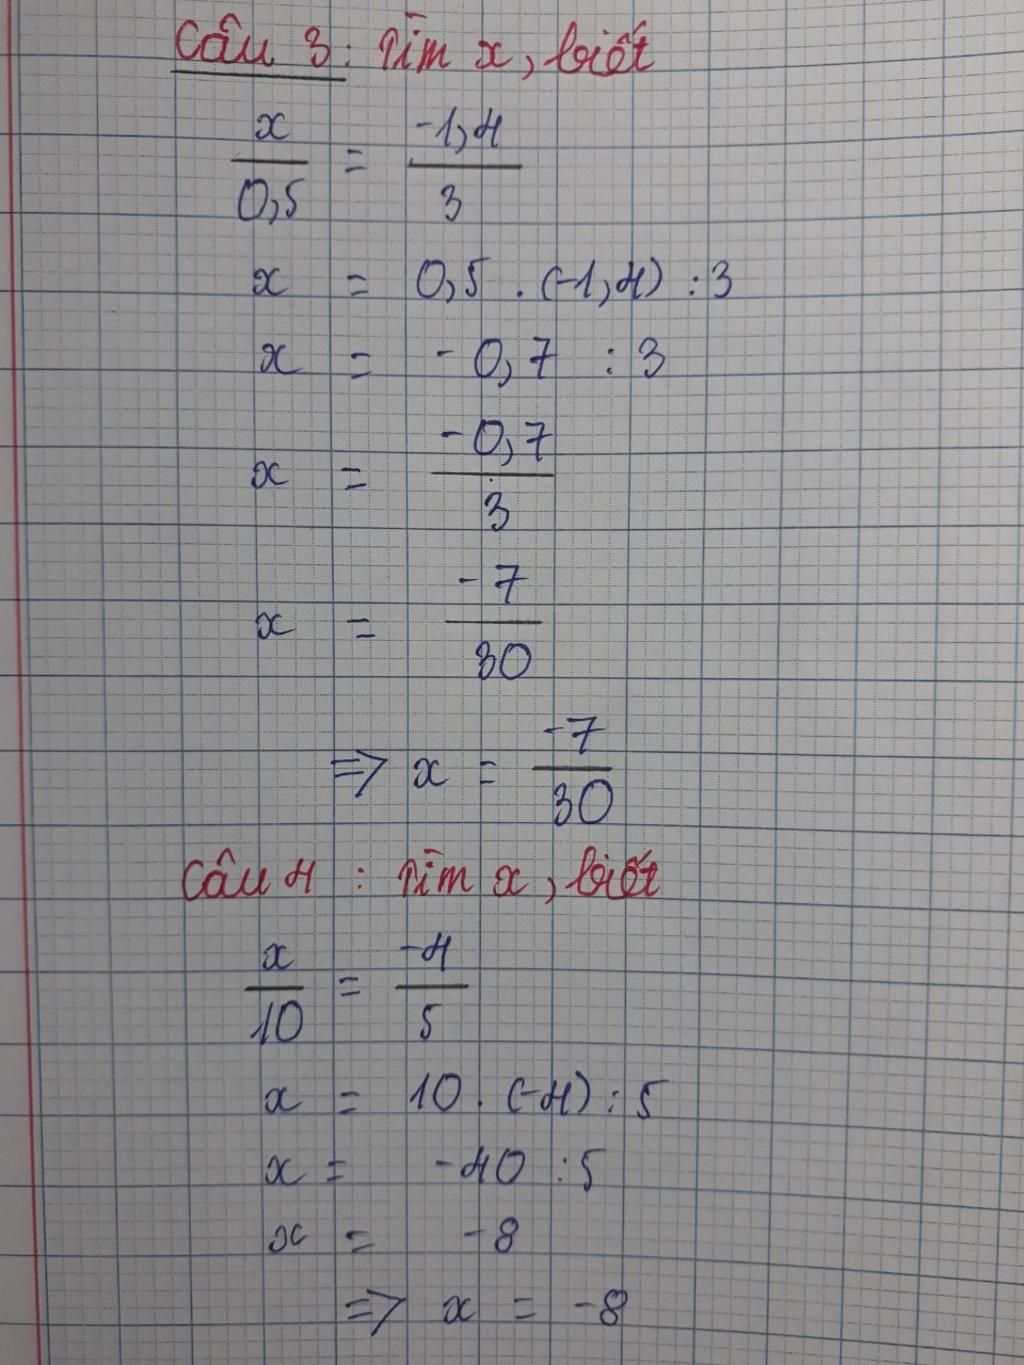 Câu 3 : Tìm x, biết
x/0,5 = -1,4/3
x = 0,5 . (-1,4) : 3
x = -0,7 : 3
x = -0,7/3
x = -7/30
⇒ x = -7/30
Câu 4 : Tìm x, biết
x/10 = -4/5
x = 10 . (-4) : 5
x = -40 : 5
x = -8
⇒ x = -8